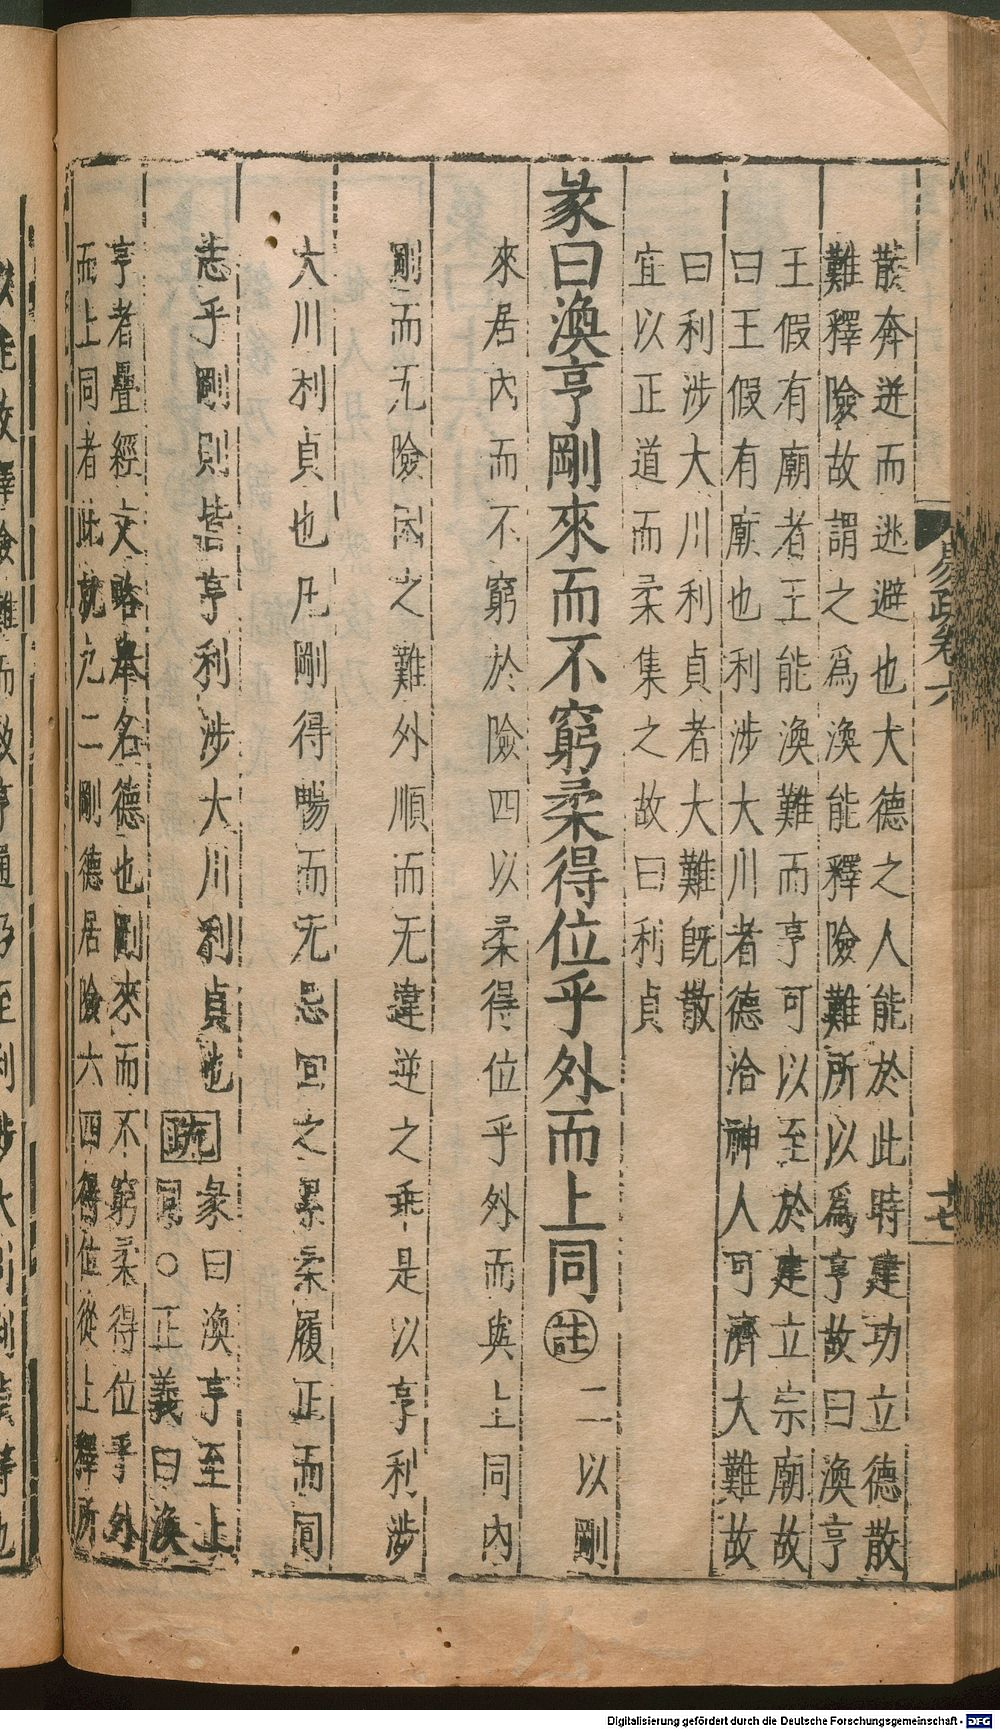 散奔迸而逃避也大德之人能於此時建功立德散
難釋險故謂之爲渙能釋險難所以爲亨故曰渙亨
王假有廟者王能渙難而亨可以至於建立宗廟故
曰王假有廟也利涉大川者德洽神人可濟大難故
曰利涉大川利貞者大難旣散
宜以正道而柔集之故曰利貞
彖曰渙亨剛來而不窮柔得位乎外而上同註二以剛
來居內而不窮於險四以柔得位乎外而與上同內
剛而无險困之難外順而无違逆之乖是以亨利涉
大川利貞也凡剛得暢而无忌回之累柔履正而同
志乎剛則皆亨利涉大川利貞也疏彖曰渙亨至上
同○正義曰渙
亨者疊經文略舉名德也剛來而不窮柔得位乎外
而上同者此就九二剛德居險六四得位從上釋所
易疏卷六
十七
Digitalisierung gefördert durch die Deutsche Forschungsgemeinschaft - DFG